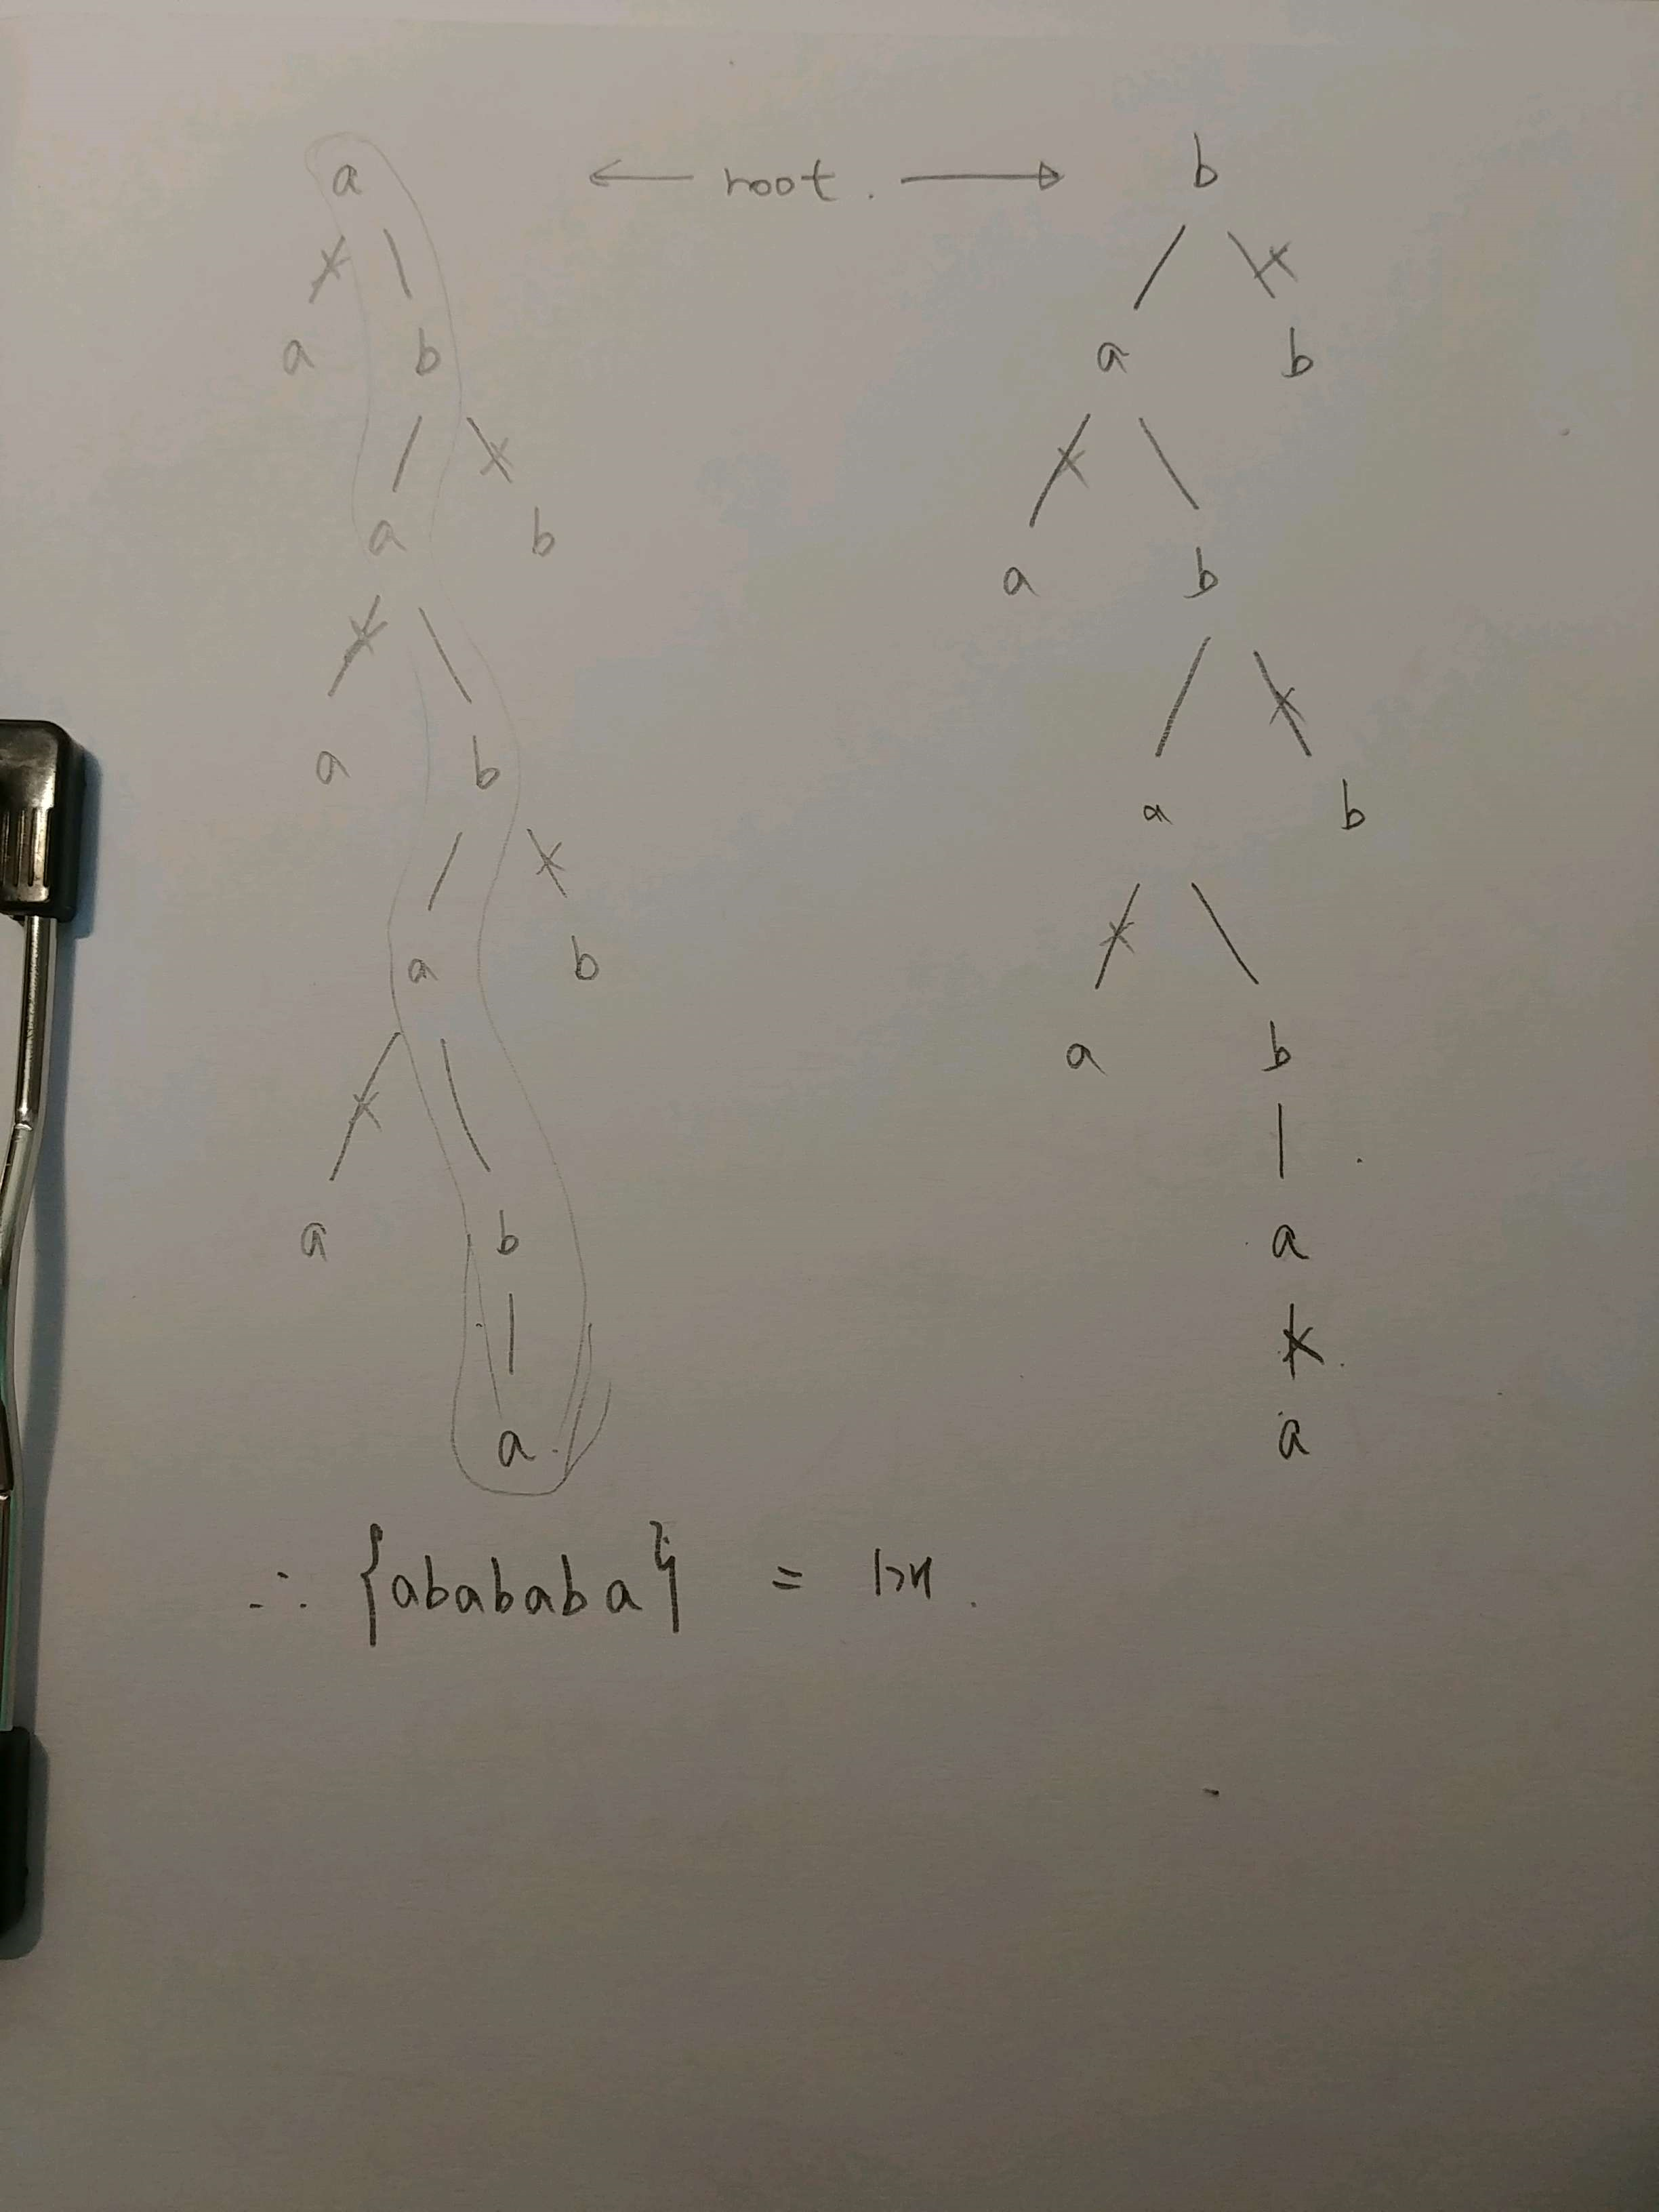 a ← root. → b
a b a b
a b
a b
a b
a b
a b
a b
a b
a
a
a
∴ {abababa} = 1개.